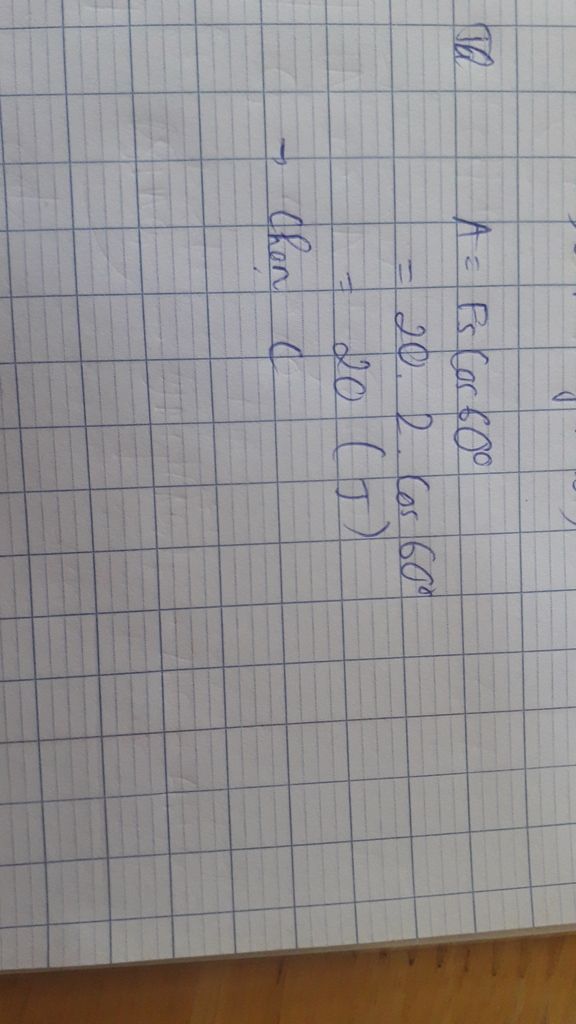 A = Fs Cos 60°
= 20. 2. Cos 60°
= 20 (J)
→ Chọn C